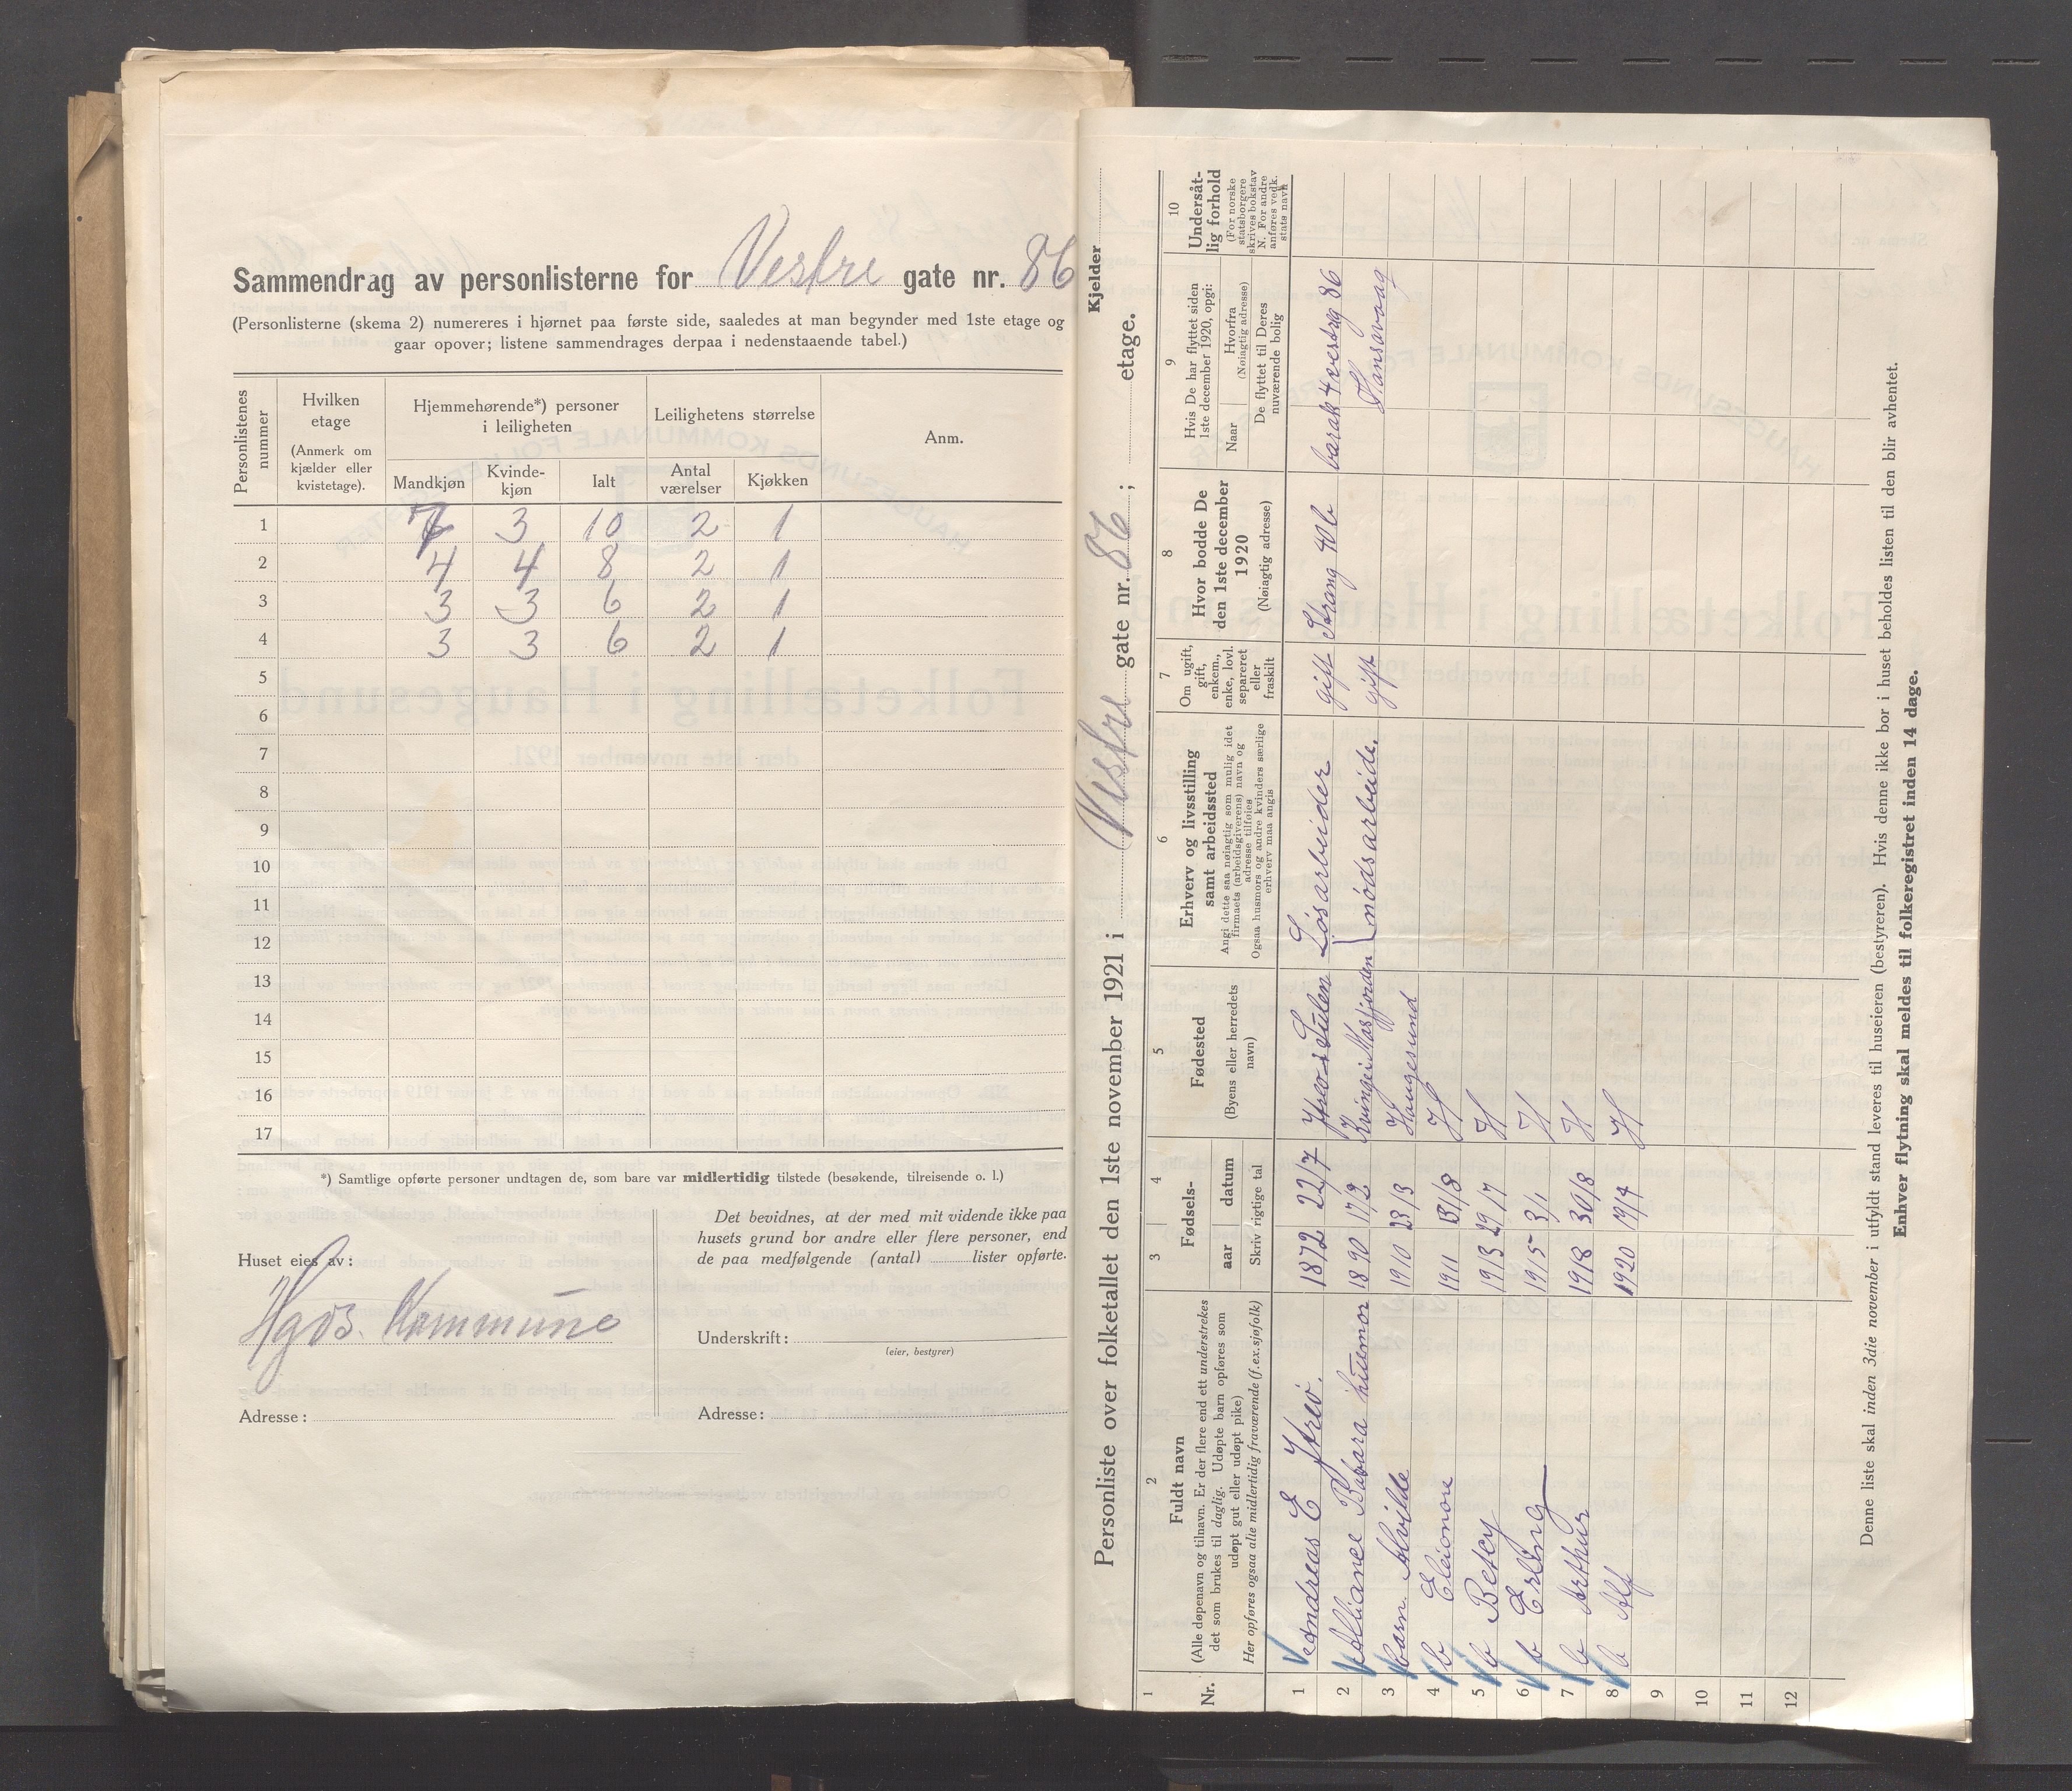 Sammendrag av personlisterne for Vestre gate nr. 86
(Personlisterne (skema 2) numereres i hjørnet paa første side, saaledes at man begynder med 1ste etage og
gaar opover; listene sammendrages derpaa i nedenstaaende tabel.)
Personlistenes nummer
Hvilken etage
(Anmerk om kjælder eller kvistetage).
Hjemmehørende*) personer i leiligheten
Leilighetens størrelse
Anm.
Mandkjøn Kvinde-kjøn Ialt Antal værelser Kjøkken
1 7 3 10 2 1
2 4 4 8 2 1
3 3 3 6 2 1
4 3 3 6 2 1
5
6
7
8
9
10
11
12
13
14
15
16
17
*) Samtlige opførte personer undtagen de, som bare var midlertidig tilstede (besøkende, tilreisende o. l.)
Huset eies av:
Hgds. Kommune
Adresse:
Det bevidnes, at der med mit vidende ikke paa
husets grund bor andre eller flere personer, end
de paa medfølgende (antal) lister opførte.
Underskrift:
(eier, bestyrer)
Adresse:
Personliste over folketallet den 1ste november 1921 i Vestre gate nr. 86; etage.
Kjelder
1
Nr.
2
Fuldt navn
(Alle døpenavn og tilnavn. Er der flere end ett understrekes
det som brukes til daglig. Udøpte barn opføres som
udøpt gut eller udøpt pike)
Her opføres ogsaa alle midlertidig fraværende (f.ex.sjøfolk)
3 4
Fødsels-
aar datum
Skriv rigtige tal
5
Fødested
(Byens eller herredets navn)
6
Erhverv og livsstilling
samt arbeidssted
Angi dette saa nøiagtig som mulig idet
firmaets (arbeidsgiverens) navn og
adresse tilføies
Ogsaa husmors og andre kvinders særlige
erhverv maa angis
7
Om ugift,
gift,
enkem.,
enke, lovl.
separeret
eller
fraskilt
8
Hvor bodde De
den 1ste december
1920
(Nøiagtig adresse)
9
Hvis De har flyttet siden
1ste december 1920, opgi:
Naar
Hvorfra
(Nøiagtig adresse)
De flyttet til Deres
nuværende bolig
10
Undersåt-
lig forhold
(For norske
statsborgere
skrives bokstav
N. For andre
anføres vedk.
stats navn
1 Andreas E Ytreö. 1872 22/7 Løsarbeider gift Strang 40b barak 4 vestrg 86
2 Allianee Babara husmor 1890 17/2 nödsarbeide. gift Hansavaag
3 barn Alvilde 1910 23/3 Haugesund
4 b Eleionore 1911 13/8 H
5 b Betsy 1913 29/7 H
6 b Erling 1915 3/1 H
7 b Arthur 1918 30/8 H
8 b Alf 1920 19/4 H
9
10
11
12
Denne liste skal inden 3die november i utfyldt stand leveres til huseieren (bestyreren). Hvis denne ikke bor i huset beholdes listen til den blir avhentet.
Enhver flytning skal meldes til folkeregistret inden 14 dage.